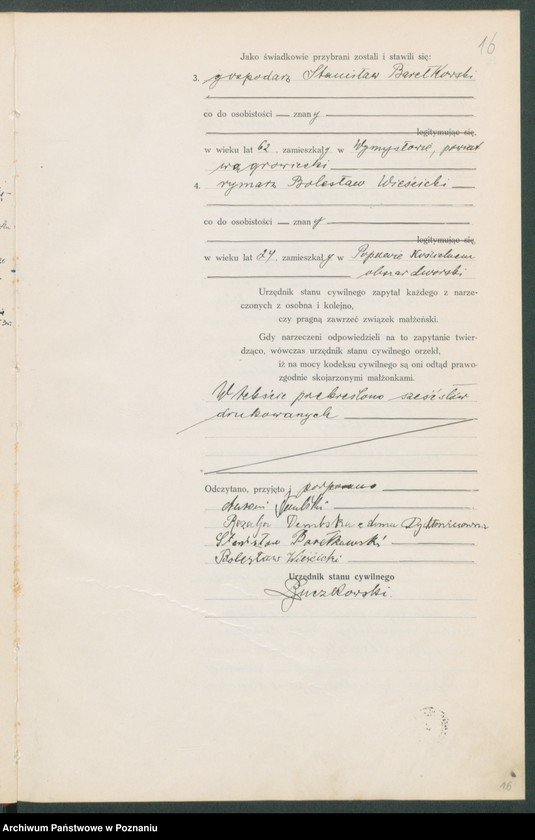 16
Jako świadkowie przybrani zostali i stawili się:
3. gospodarz Stanisław Barełkowski
co do osobistości — znany
legitymując się,
w wieku lat 62, zamieszkały w Wymysłowie, powiat
wągrowiecki
4. rymarz Bolesław Wieścicki
co do osobistości — znany
legitymując się,
w wieku lat 24, zamieszkały w Popowie Kościelnem
obszar dworski
Urzędnik stanu cywilnego zapytał każdego z narze-
czonych z osobna i kolejno,
czy pragną zawrzeć związek małżeński.
Gdy narzeczeni odpowiedzieli na to zapytanie twier-
dząco, wówczas urzędnik stanu cywilnego orzekł,
iż na mocy kodeksu cywilnego są oni odtąd prawo-
zgodnie skojarzonymi małżonkami.
W tekście przekreślono sześć słów
drukowanych
Odczytano, przyjęto i podpisano
Antoni
Rozalja Dembska z domu
Stanisław Barełkowski
Bolesław Wieścicki
Urzędnik stanu cywilnego
Buczkowski.
16
Archiwum Państwowe w Poznaniu